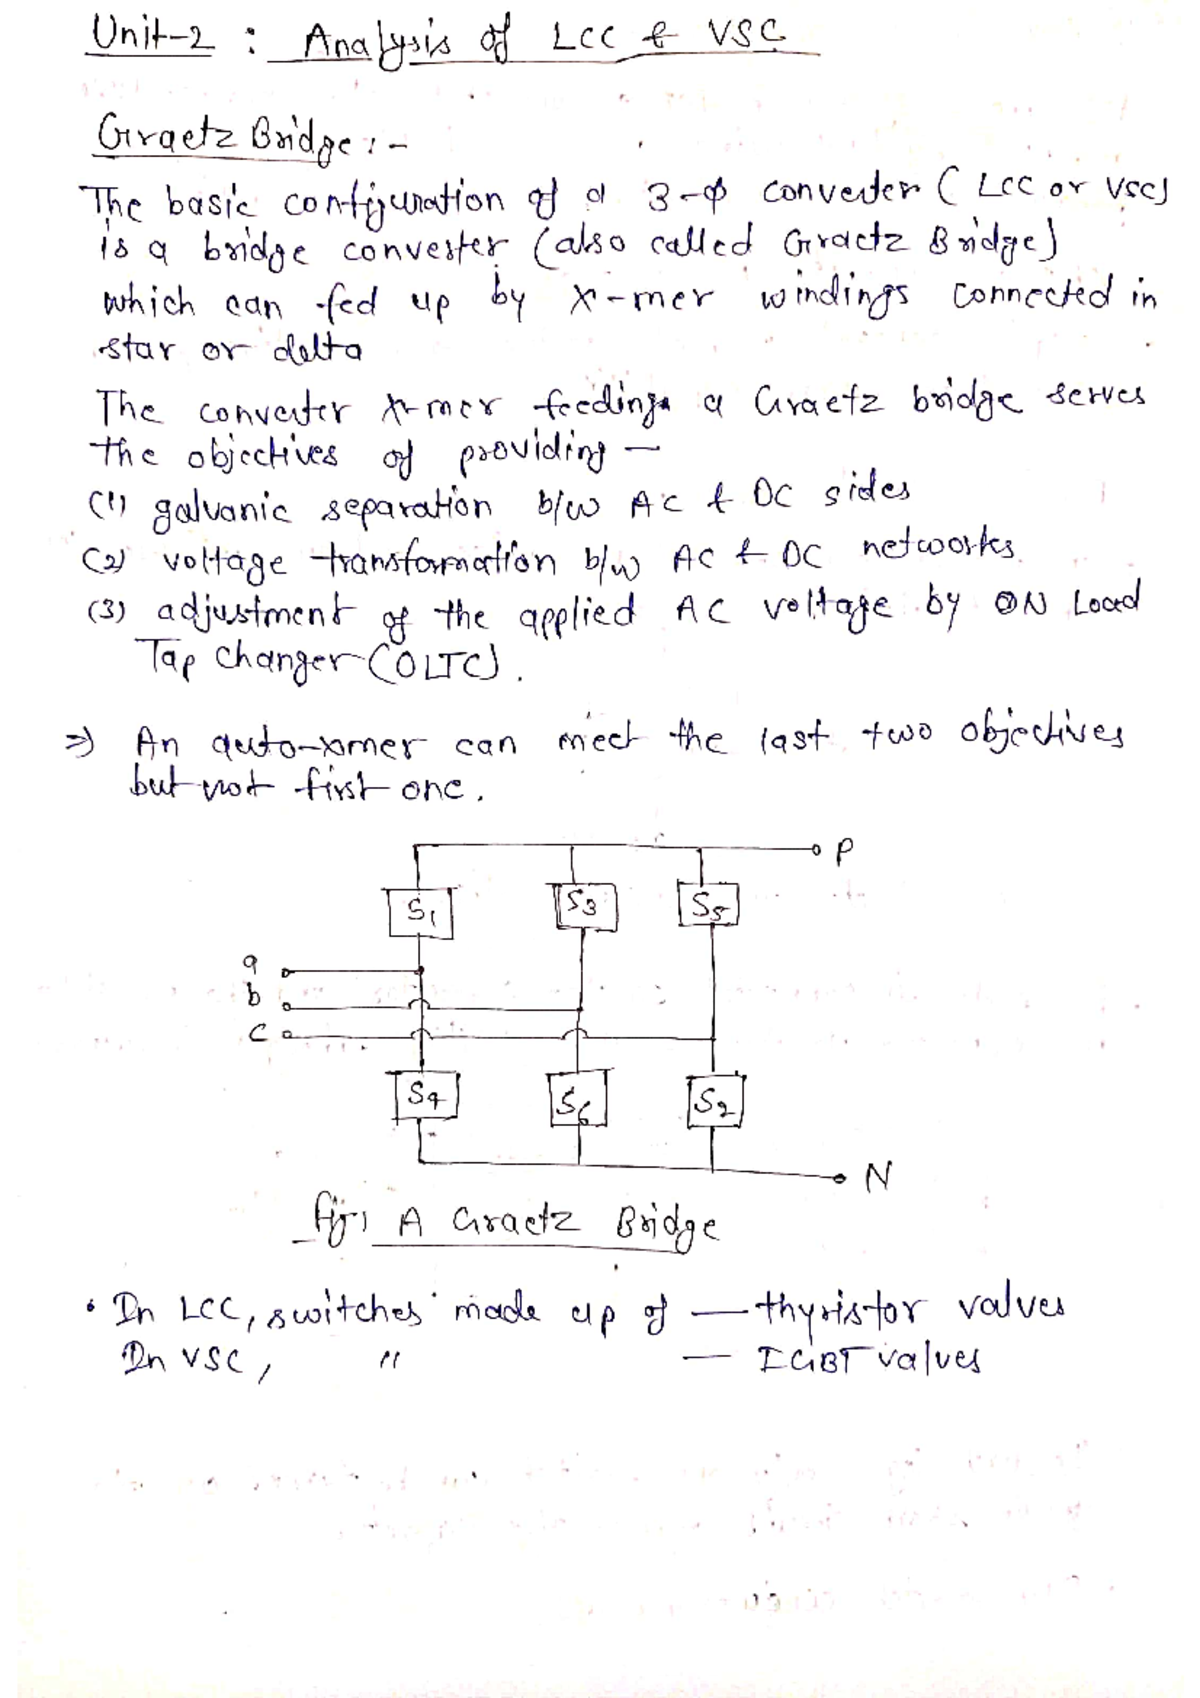 Unit-2 : Analysis of LCC & VSC
Graetz Bridge :-
The basic configuration of a 3-φ converter (LCC or VSC)
is a bridge converter (also called Graetz Bridge)
which can fed up by x-mer windings connected in
star or delta
The converter x-mer feeding a Graetz bridge serves
the objectives of providing —
(1) galvanic separation b/w AC & DC sides
(2) voltage transformation b/w AC & DC networks.
(3) adjustment of the applied AC voltage by ON Load
Tap Changer (OLTC).
⇒ An auto-xmer can meet the last two objectives
but not first one.
P
S1 S3 S5
a
b
c
S4 S6 S2
N
fig: A Graetz Bridge
• In LCC, switches made up of — thyristor valves
In VSC, " — IGBT valves